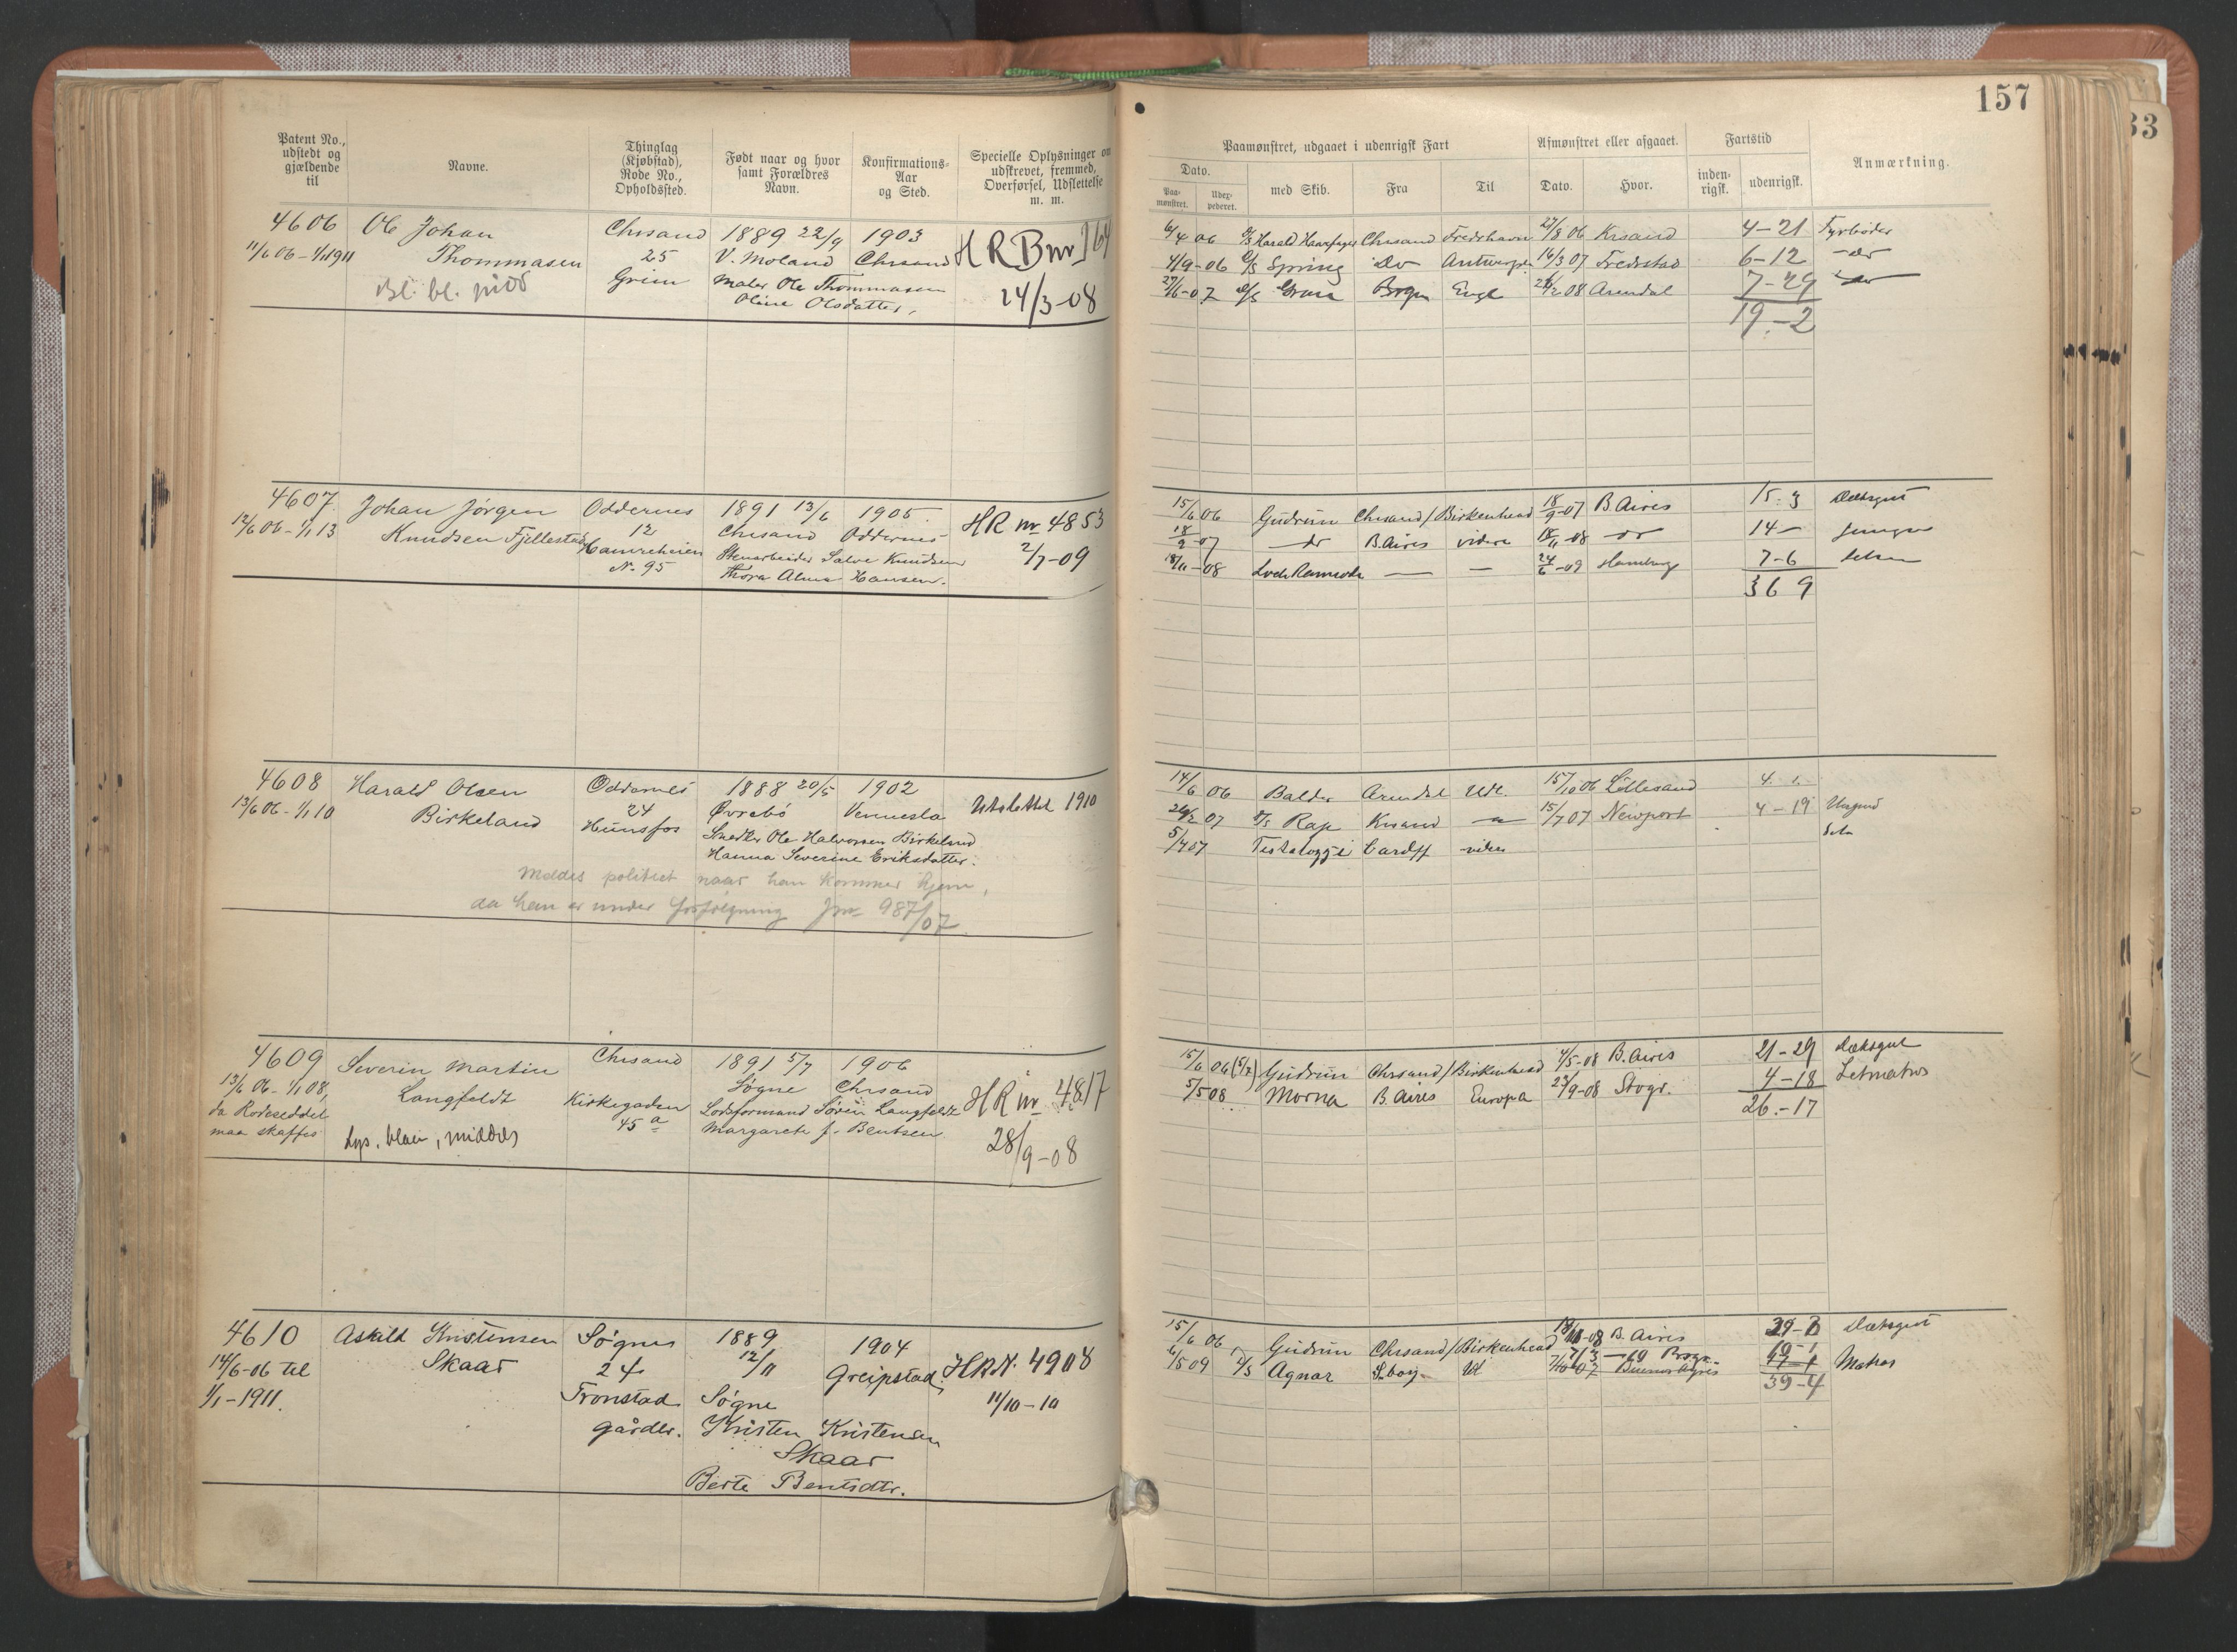 157
33
Patent No., udstedt og gjældende til
Navne.
Thinglag (Kjøbstad), Rode No., Opholdssted.
Født naar og hvor samt Forældres Navn.
Konfirmations-Aar og Sted.
Specielle Oplysninger om udskrevet, fremmed, Overførsel, Udslettelse m. m.
Paamønstret, udgaaet i udenrigsk Fart
Afmønstret eller afgaaet.
Fartstid
Anmærkning.
Dato.
Paa-mønstret.
med Skib.
Fra
Til
Dato.
Hvor.
inden-rigsk.
udenrigsk.
4606 Ole Johan Chrsand 1889 22/9 1903 HR Bnr
11/6 06 - 1/1 1911 Thommasen 25 V. Moland Chrsand
Bl. bl. mid Grim Maler Ole Thommasen 24/3-08
Oline Olsdatter.
6/4 06 D/S Harald Haarfager Chrsand Fredrhavn 27/8 06 Krsand 4-21 Fyrbøder
4/9-06 D/S Spring Do Antwerpen 16/3 07 Fredrstad 6-12 do
27/6-07 D/S Engl 08 Arendal 7-29 do
19-2
4607 Johan Jørgen Oddernes 1891 13/6 1905 HR nr 4853
12/6 06 - 1/1 13 Knudsen Fjellestad 12 Chrsand Oddernes 2/7-09
N. 95 Stenarbeider Salve Knudsen
Thora Alma Hansen.
15/6 06 Gudrun Chrsand/Birkenhead 18/9-07 B. Aires 15. 3 Dæksgut
18/9-07 do B. Aires videre 18/11-08 do 14 - Jungm
18/11-08 — — 24/6-09 Hamburg 7-6
36 9
4608 Harald Olsen Oddernes 1888 20/5 1902 Utslettet 1910
13/6 06 - 1/1 10 Birkeland 24 Øvrebø Vennesla
Hunsfos Smedkr Ole Halvorsen Birkeland
Hanna Severine Eriksdatter.
Meldes politiet naar han kommer hjem,
da han er under forfølgning Jnr 987/07
14/6 06 Balder Arendal Udl. 15/10 06 Lillesand 4. 1.
07 D/S Rap Krsand 15/7 07 Newport 4-19
5/7 07 Cardff videre
4609 Severin Martin Chrsand 1891 5/7 1906 HR nr 4817
13/6 06 - 1/1 08, Langfeldt Kirkegaden Søgne Chrsand
da Rodeseddel 45 a Lodsformand Søren Langfeldt
maa skaffes Lys, blaa, middels Margarete f. Bentsen 28/9-08
15/6 06 (5/7) Gudrun Chrsand/Birkenhead 4/5-08 B. Aires 21-29 Dæksgut
5/5 08 Morna B. Aires Europa 23/9-08 Stvgr. 4-18 Letmatros
26.-17
4610 Askild Kristensen Søgne 1889 1904 HR N. 4908
14/6-06 til Skaar 24 12/11 Greipstad 11/10-10
1/1-1911. Tronstad Søgne
gårdbr. Kristen Kristensen
Skaar
Berte Bentsdtr.
15/6 06 Gudrun Chrsand/Birkenhead -08 B. Aires Dæksgut
6/5 09 D/S Agnar Ut Buenos Ayres Matros
39-4